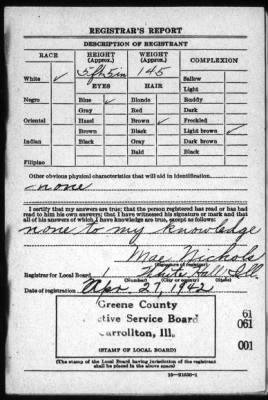 REGISTRAR'S REPORT
DESCRIPTION OF REGISTRANT
RACE HEIGHT (Approx.) WEIGHT (Approx.) COMPLEXION
White ✓ 5ft 5in 145 Sallow
EYES HAIR Light
Negro Blue ✓ Blonde Ruddy
Gray Red Dark
Oriental Hazel Brown ✓ Freckled
Brown Black Light brown ✓
Indian Black Gray Dark brown
Bald Black
Filipino
Other obvious physical characteristics that will aid in identification
none
I certify that my answers are true; that the person registered has read or has had
read to him his own answers; that I have witnessed his signature or mark and that
all of his answers of which I have knowledge are true, except as follows:
none to my knowledge
Mae Nichols
(Signature of registrar)
Registrar for Local Board 1 White Hall Ill
(Number) (City or county) (State)
Date of registration Apr. 27, 1942
Greene County
ctive Service Board
Carrollton, Ill.
61
061
001
(STAMP OF LOCAL BOARD)
(The stamp of the Local Board having jurisdiction of the registrant
shall be placed in the above space.)